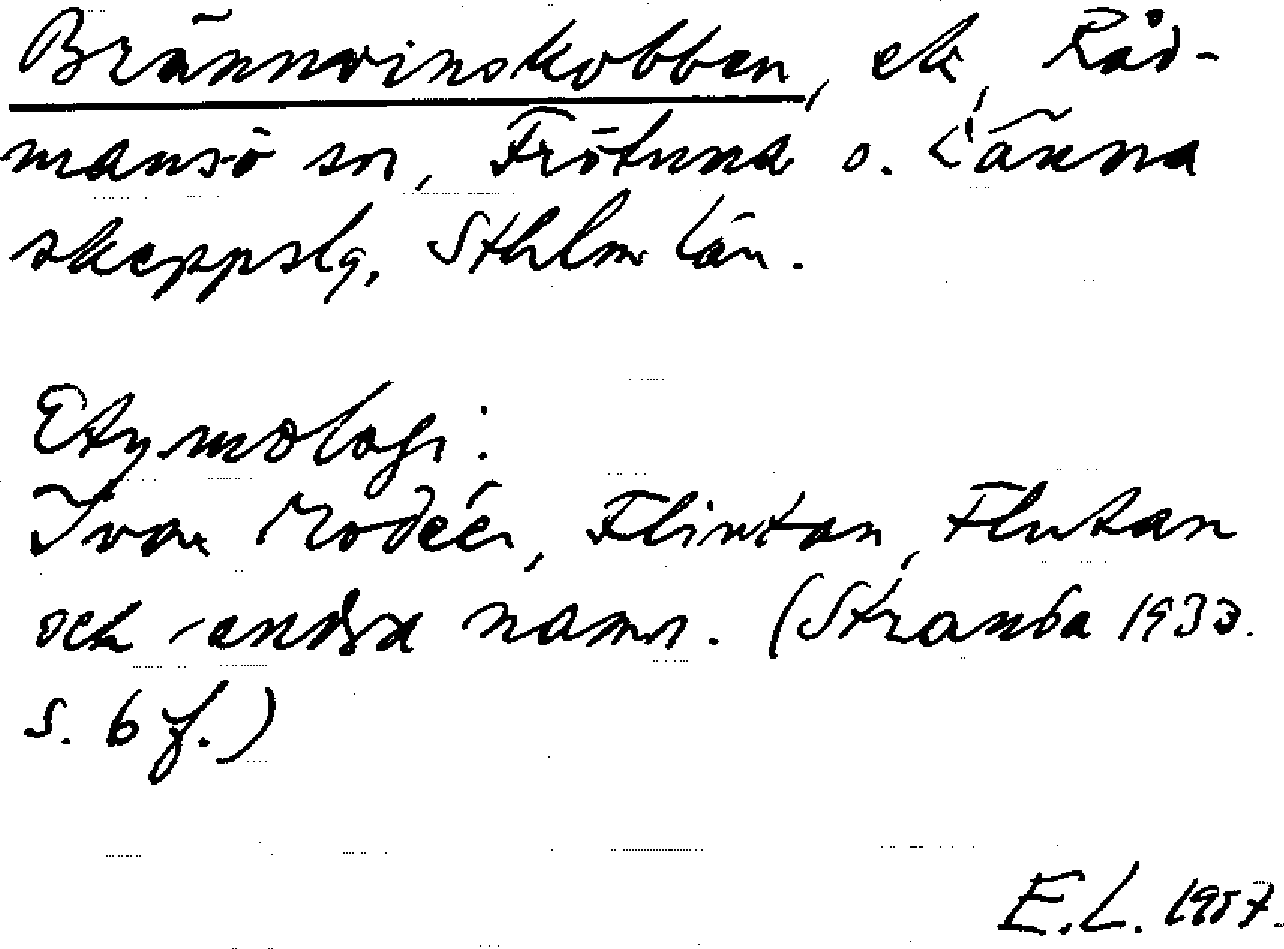 Brännvinskobben, ek, Råd-
mansö sn, Frötuna o. Länna
skeppslg, Sthlm län.
Etymologi:
Ivar Modéer, Flintan, Flutan
och andra namn. (Stranda 1933.
s. 6 f.)
E.L. 1957.